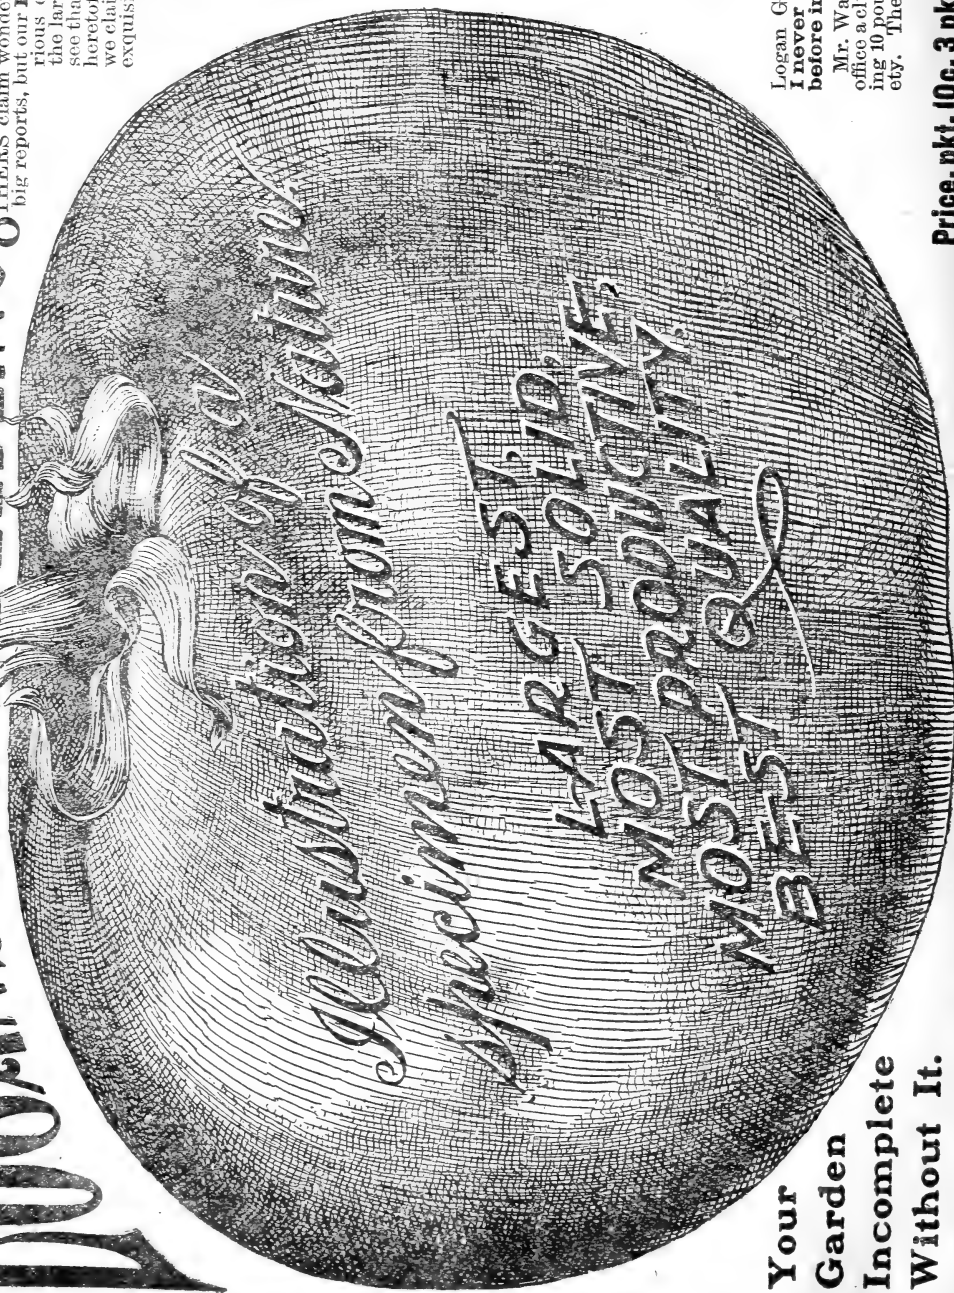 OTHERS claim wonde
big reports, but our
rious
the lar
see tha
heretof
we clai
exquis
Illustration of a
specimen from Nature
LARGEST,
MOST SOLID,
MOST PRODUCTIVE,
BEST QUALITY.
Your
Garden
Incomplete
Without It.
Logan G
I never
before in
Mr. Wa
office a cl
ing 10 pou
ety. The
Price, pkt. 10c, 3 pk